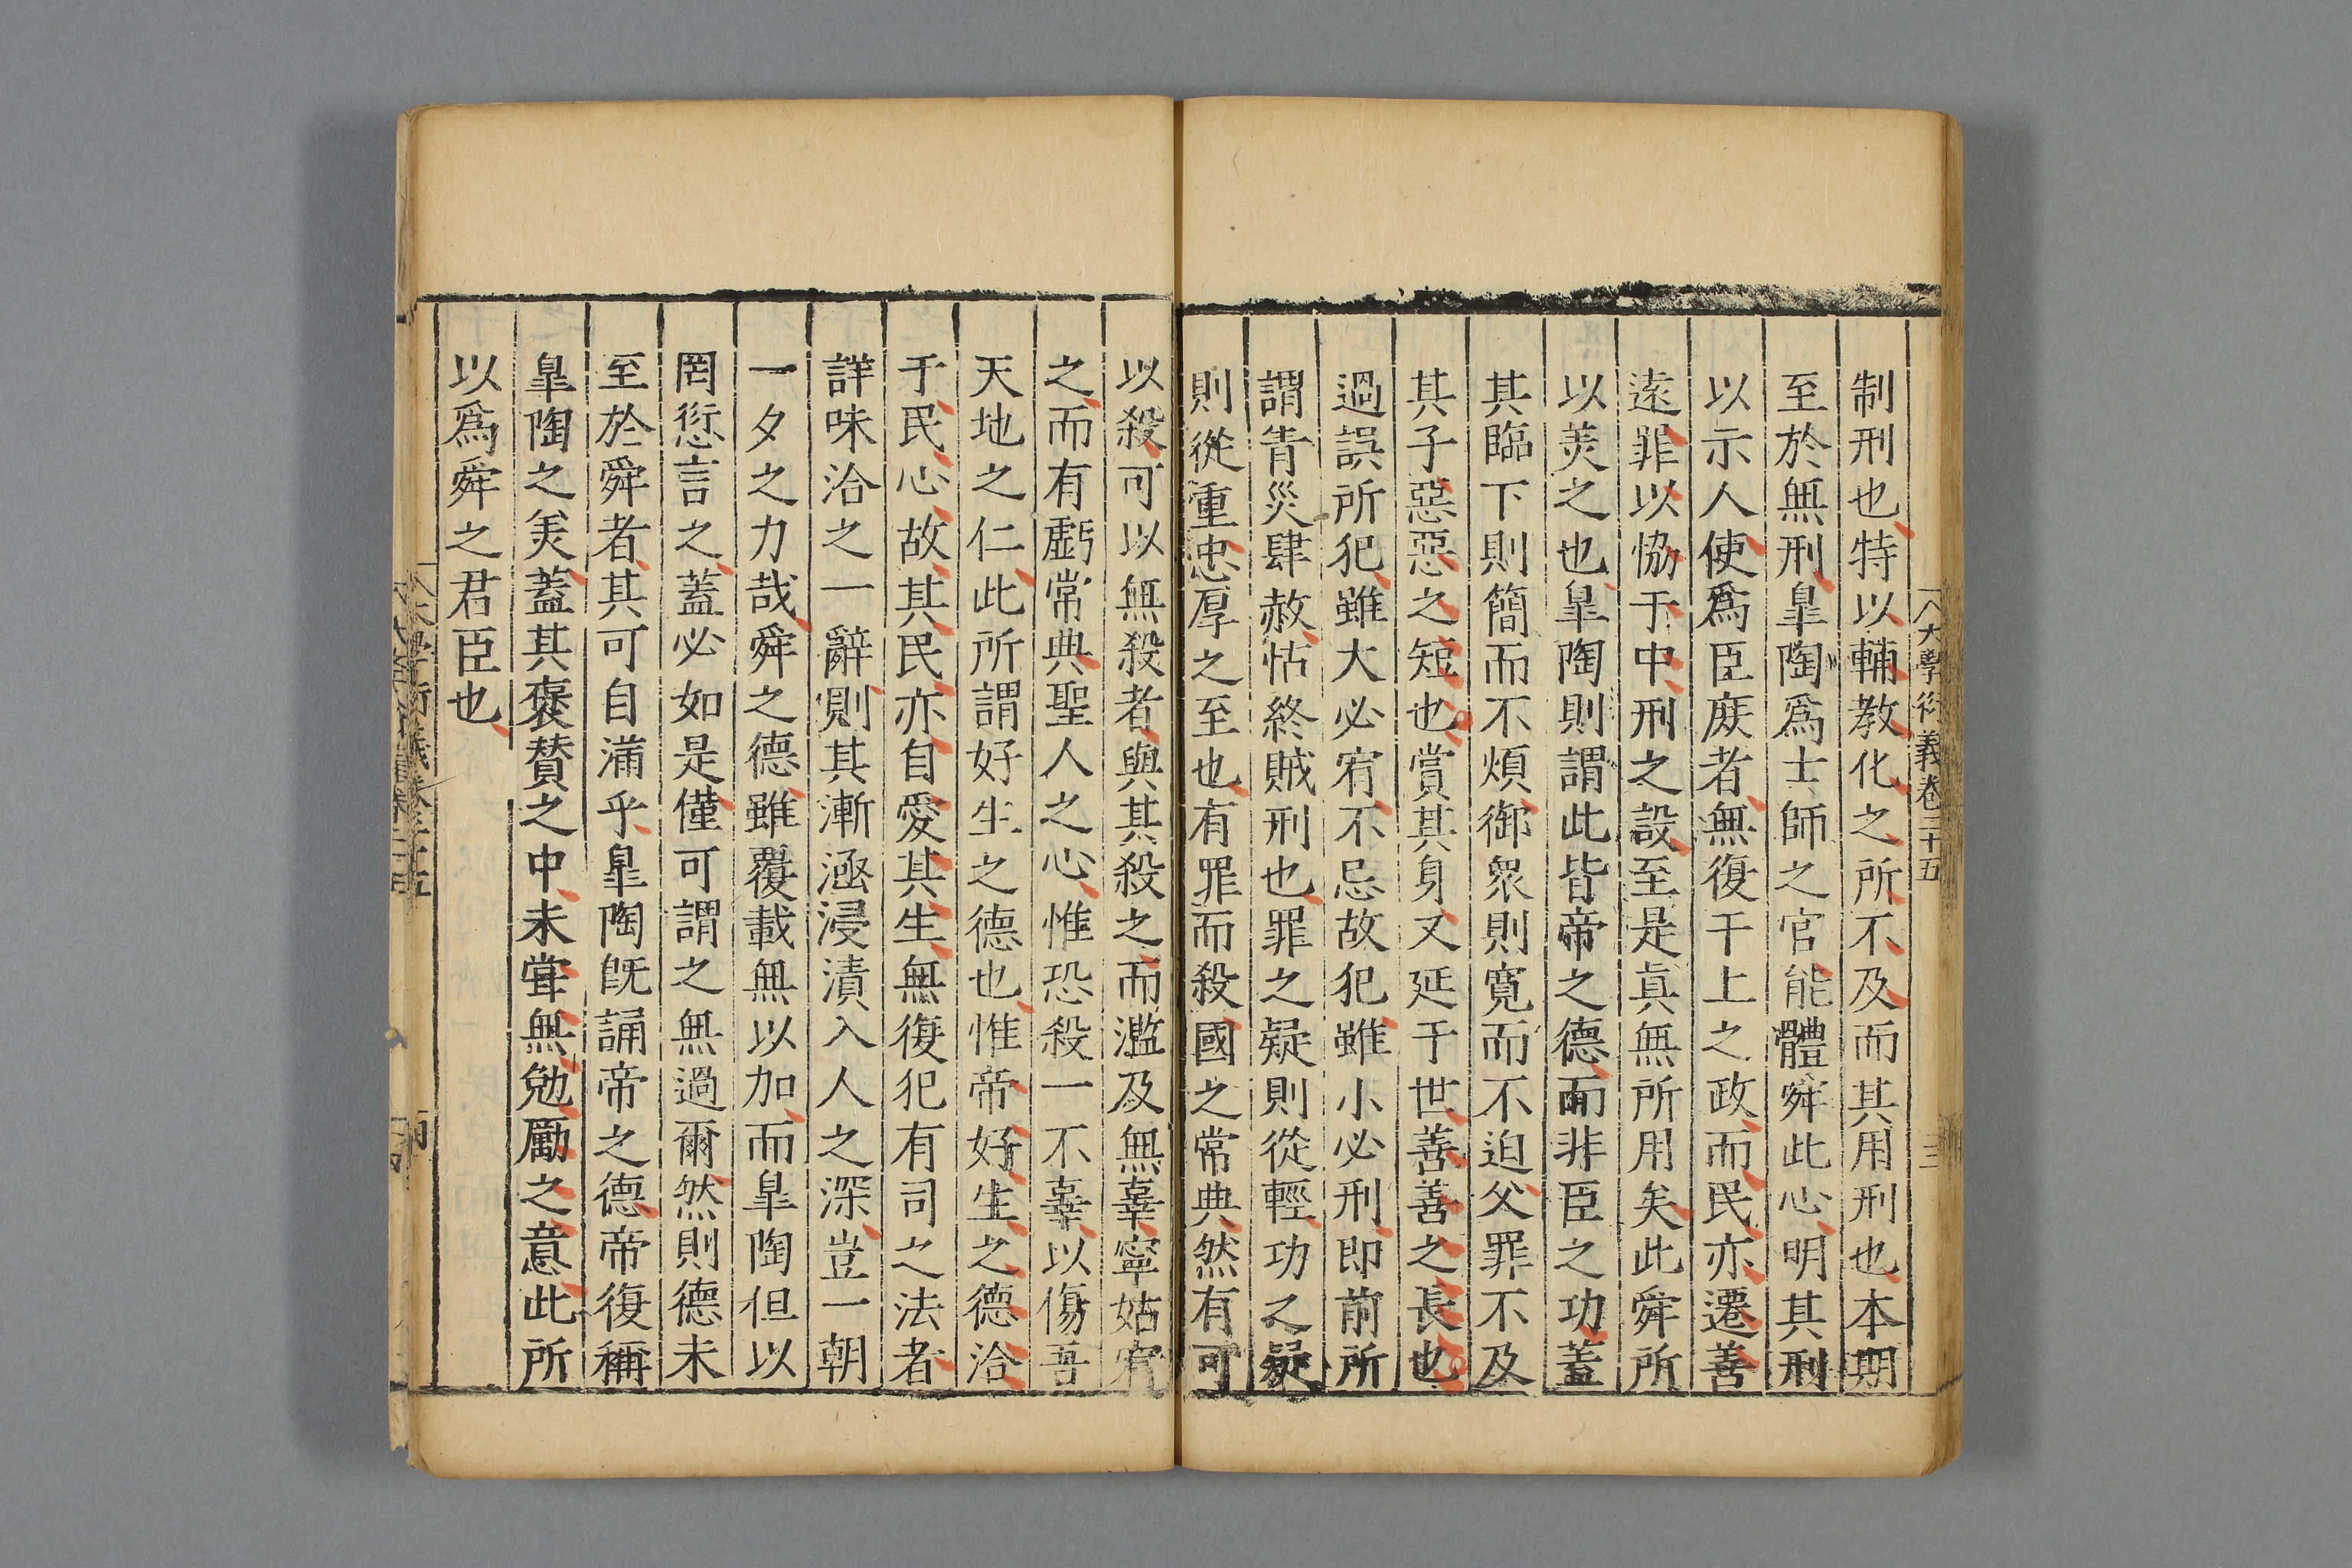 大學衍義卷二十五
三
制刑也特以輔教化之所不及而其用刑也本期
至於無刑臯陶爲士師之官能體舜此心明其刑
以示人使爲臣庻者無復干上之政而民亦遷善
遠罪以恊于中刑之設至是眞無所用矣此舜所
以羙之也臯陶則謂此皆帝之德而非臣之功蓋
其臨下則簡而不煩御衆則寬而不迫父罪不及
其子惡惡之短也賞其身又延于世善善之長也
過誤所犯雖大必宥不忌故犯雖小必刑即前所
謂眚災肆赦怙終賊刑也罪之疑則從輕功之疑
則從重忠厚之至也有罪而殺國之常典然有可
以殺可以無殺者與其殺之而濫及無辜寧姑宥
之而有虧常典聖人之心惟恐殺一不辜以傷吾
天地之仁此所謂好生之德也惟帝好生之德洽
于民心故其民亦自愛其生無復犯有司之法者
詳味洽之一辭則其漸涵浸漬入人之深豈一朝
一夕之力哉舜之德雖覆載無以加而臯陶但以
罔愆言之蓋必如是僅可謂之無過爾然則德未
至於舜者其可自滿乎臯陶旣誦帝之德帝復稱
臯陶之羙蓋其襃賛之中未甞無勉勵之意此所
以爲舜之君臣也